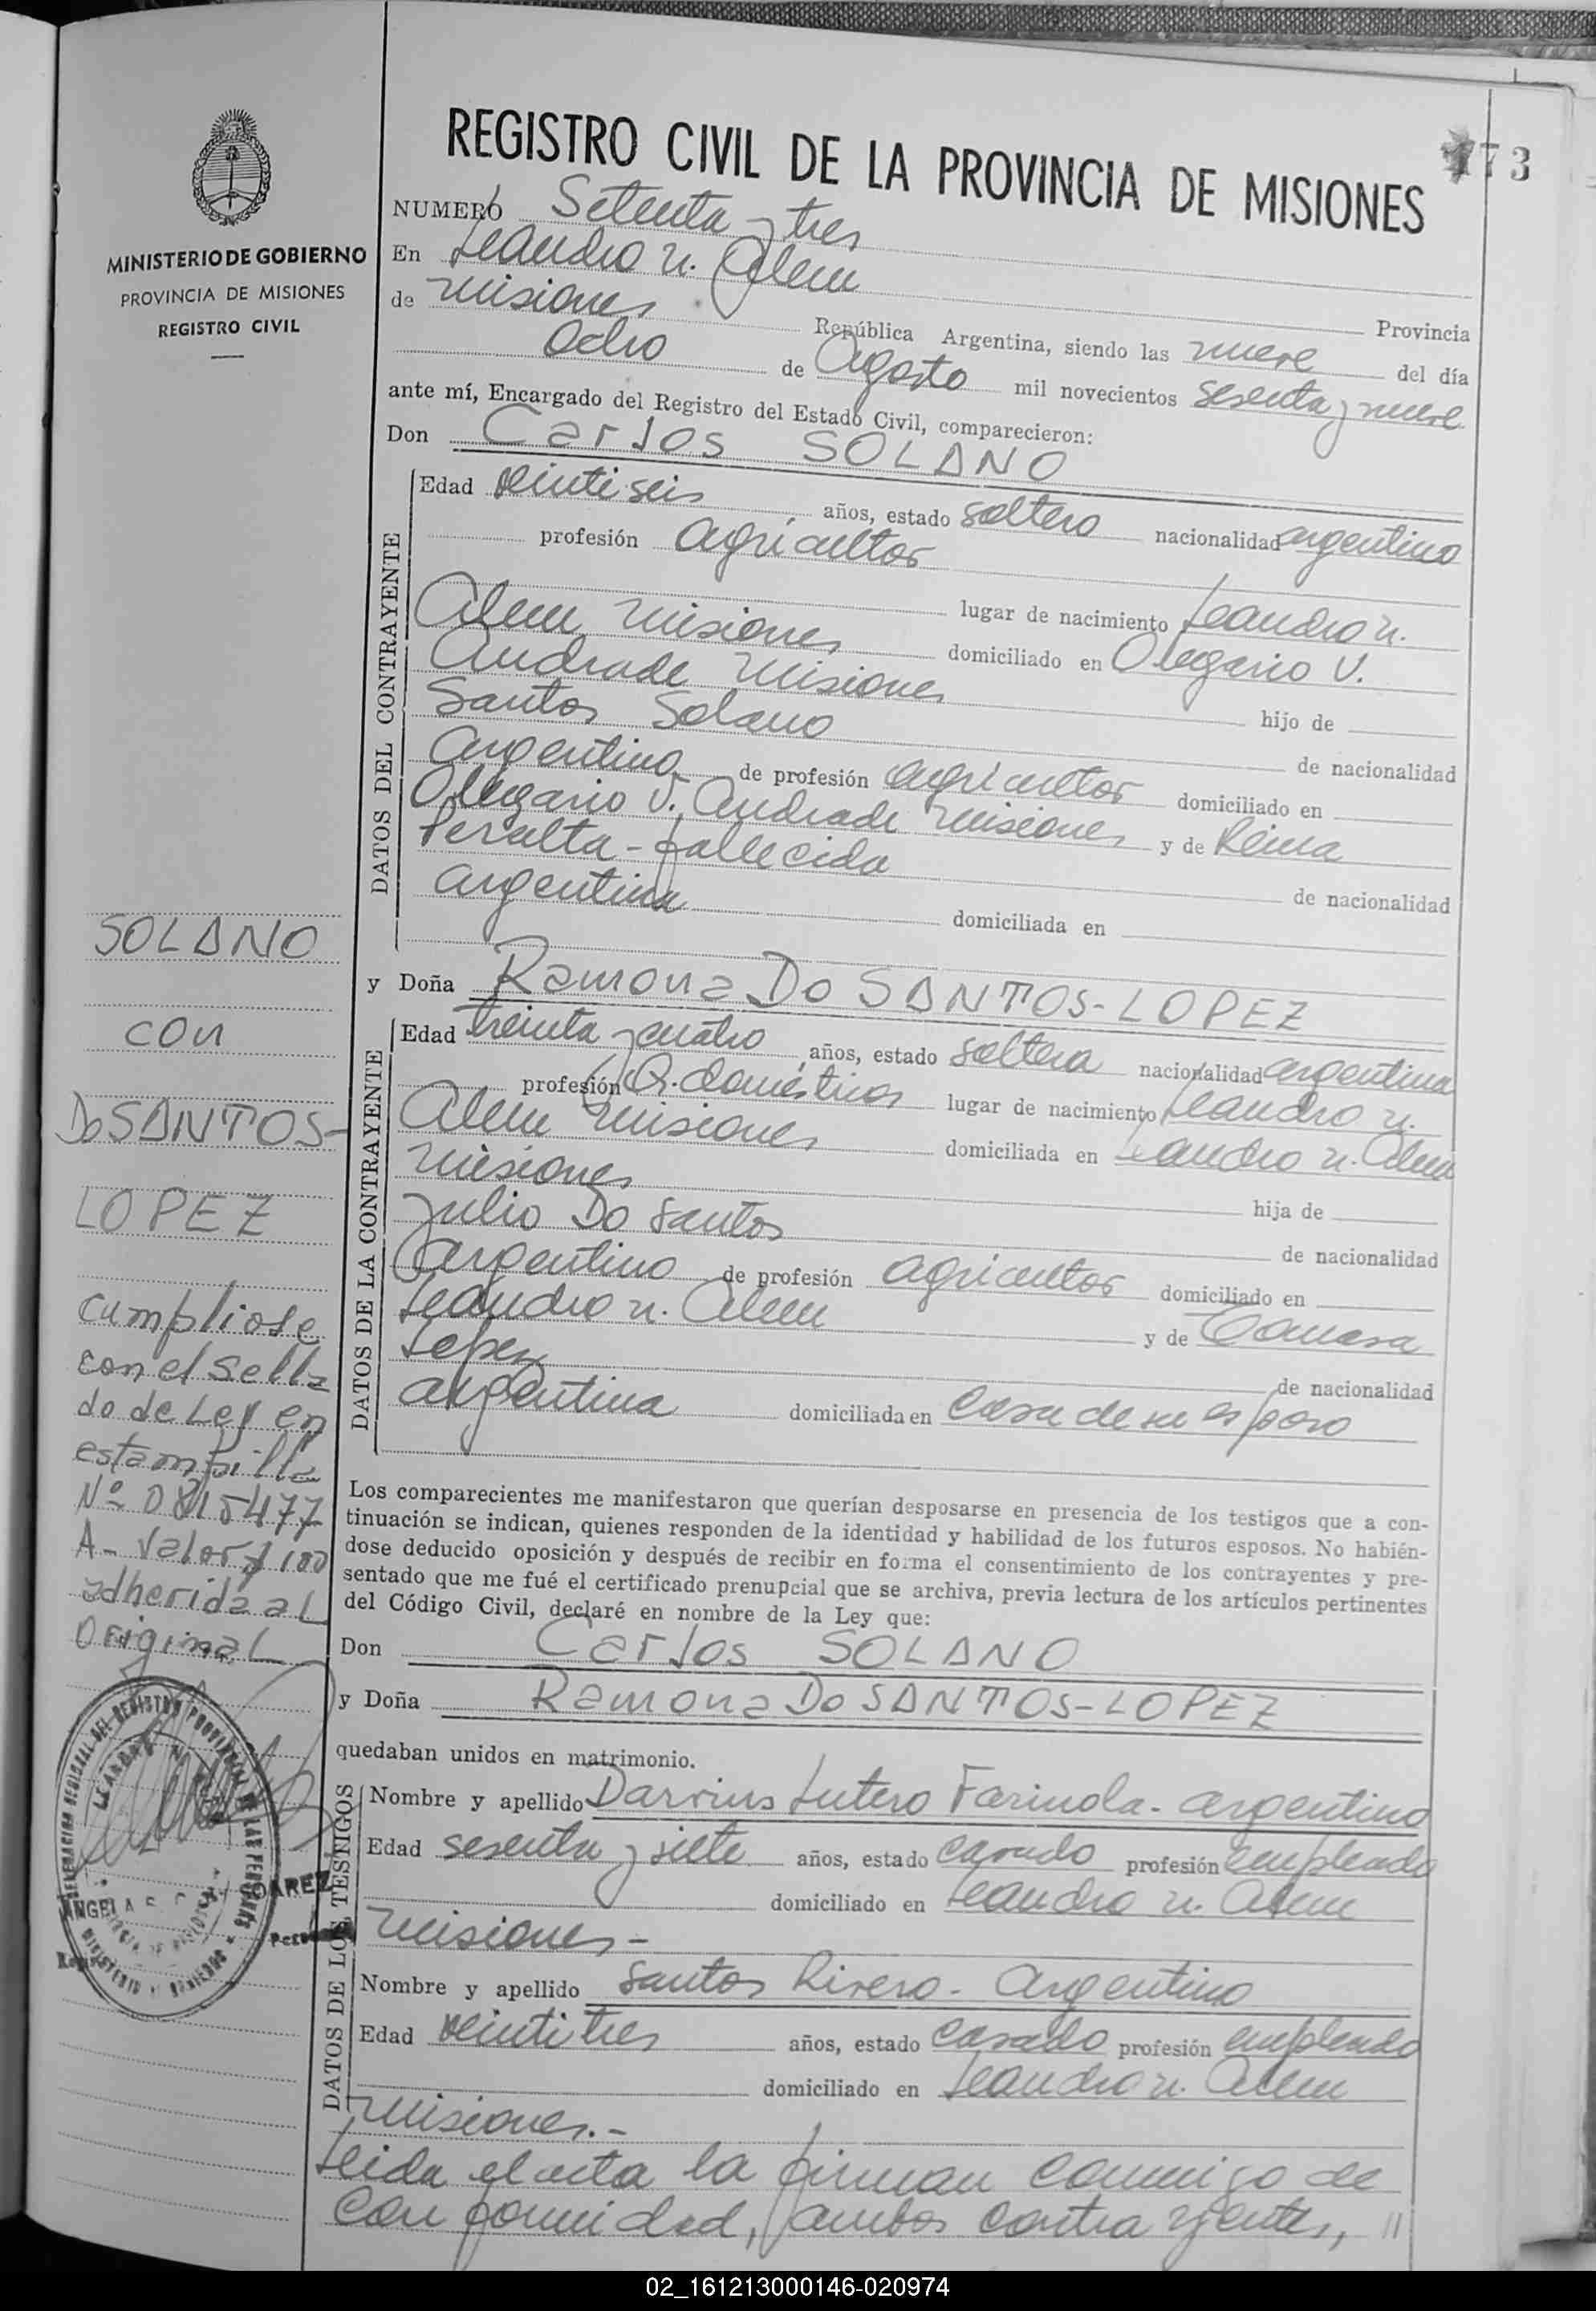 REGISTRO CIVIL DE LA PROVINCIA DE MISIONES
73
MINISTERIO DE GOBIERNO
PROVINCIA DE MISIONES
REGISTRO CIVIL
NUMERO Setenta y tres
En Leandro N. Alem
Provincia
de Misiones República Argentina, siendo las nueve del día
Ocho de Agosto mil novecientos sesenta y nueve
ante mí, Encargado del Registro del Estado Civil, comparecieron:
Don Carlos SOLANO
DATOS DEL CONTRAYENTE
Edad veintiseis años, estado soltero nacionalidad argentino
profesión agricultor
lugar de nacimiento Leandro N.
Alem Misiones domiciliado en Olegario V.
Andrade Misiones hijo de
Santos Solano de nacionalidad
argentino de profesión agricultor domiciliado en
Olegario V. Andrade Misiones y de Reina
Peralta - fallecida de nacionalidad
argentina domiciliada en
y Doña Ramona Do SANTOS-LOPEZ
DATOS DE LA CONTRAYENTE
Edad treinta y cuatro años, estado soltera nacionalidad argentina
profesión Q. domésticos lugar de nacimiento Leandro N.
Alem Misiones domiciliada en Leandro N. Alem
Misiones hija de
Julio Do Santos de nacionalidad
argentino de profesión agricultor domiciliado en
Leandro N. Alem y de
Lopez de nacionalidad
argentina domiciliada en casa de su esposo
Los comparecientes me manifestaron que querían desposarse en presencia de los testigos que a con-
tinuación se indican, quienes responden de la identidad y habilidad de los futuros esposos. No habién-
dose deducido oposición y después de recibir en forma el consentimiento de los contrayentes y pre-
sentado que me fué el certificado prenupcial que se archiva, previa lectura de los artículos pertinentes
del Código Civil, declaré en nombre de la Ley que:
Don Carlos SOLANO
y Doña Ramona Do SANTOS-LOPEZ
quedaban unidos en matrimonio.
DATOS DE LOS TESTIGOS
Nombre y apellido Darrius Lutero Farinola - argentino
Edad sesenta y siete años, estado casado profesión empleado
domiciliado en Leandro N. Alem
Misiones -
Nombre y apellido Santos Rivero - Argentino
Edad veintitres años, estado casado profesión empleado
domiciliado en Leandro N. Alem
Misiones.-
Leida el acta la firman conmigo de
conformidad, ambos contrayentes, //
SOLANO
con
Do SANTOS-
LOPEZ
Cumpliose
con el Sella
do de Ley en
estampilla
Nº 0815477
A - Valor $ 100
adherida al
Original
02_161213000146-020974